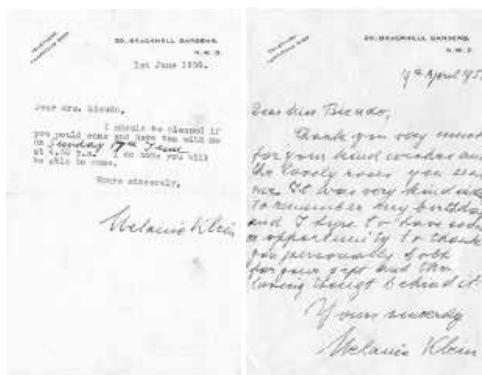 20, BRACKNELL GARDENS,
N.W.3.
1st June 1956.
Dear Mrs. Bicudo,
I should be pleased if
you could come and have tea with me
on Sunday 17th June
at 4.30 p.m. I do hope you will
be able to come.
Yours sincerely,
Melanie Klein
20, BRACKNELL GARDENS,
N.W.3.
7th April 195
Dear Miss Bicudo,
Thank you very much
for your kind wishes and
the lovely roses you sent
me. It was very kind
to remember my birthday
and I hope to have soon
opportunity to thank
you personally both
for your gift and the
loving thougt behind it.
Yours sincerely
Melanie Klein